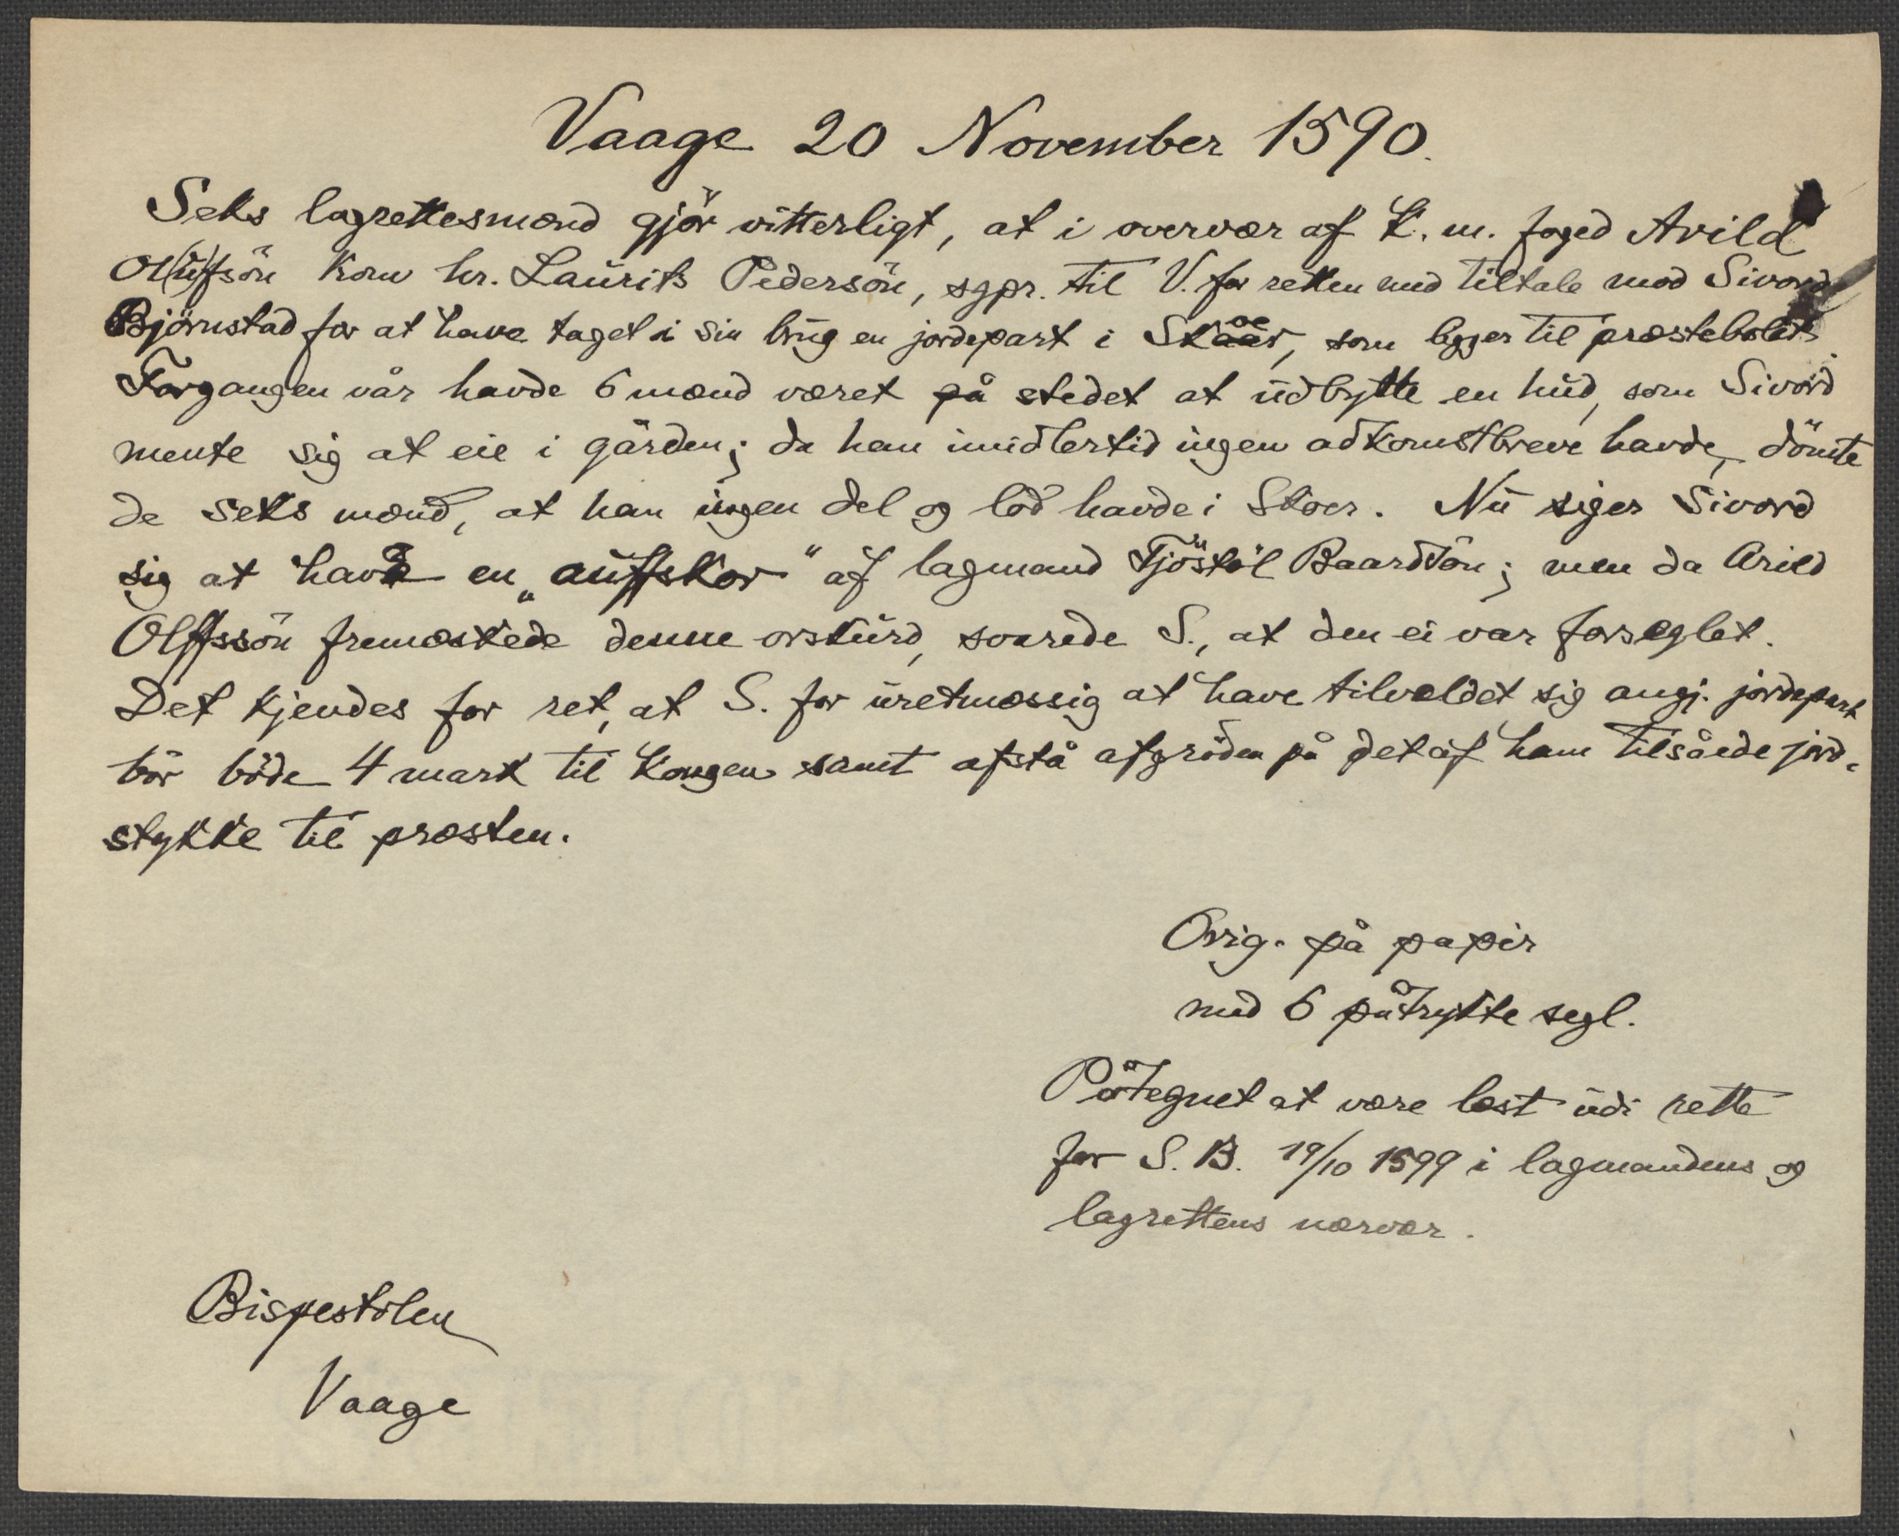 Vaage 20 November 1590.
Seks lagrettesmænd gjör vitterligt, at i overvær af k. m. foged Arild
Ol(u)fsön kom hr. Laurits Pedersön, sgpr. til V. for retten med tiltale mod Sivord
Björnstad for at have taget i sin brug en jordepart i Skoer, som ligger til præstebolet.
Forgangen vår havde 6 mænd været på stedet at udbytte en hud, som Sivord
mente sig at eie i gården; da han imidlertid ingen adkomstbreve havde, dömte
de seks mænd, at han ingen del og lod havde i Skoer. Nu siger Sivord
sig at have en „auffskor“ af lagmand Tjöstöl Baardsön; men da Arild
Olffssön fremæskede denne orskurd, svarede S., at den ei var forseglet.
Det kjendes for ret, at S. for uretmæssig at have tilvældet sig angj. jordepart
bör böde 4 mark til kongen samt afstå afgröden på det af ham tilsåede jord-
stykke til præsten.
Orig. på papir
med 6 påtrykte segl.
Påtegnet at være læst udi rette
for S. B. 19/10 1599 i lagmandens og
lagrettens nærvær.
Bispestolen
Vaage